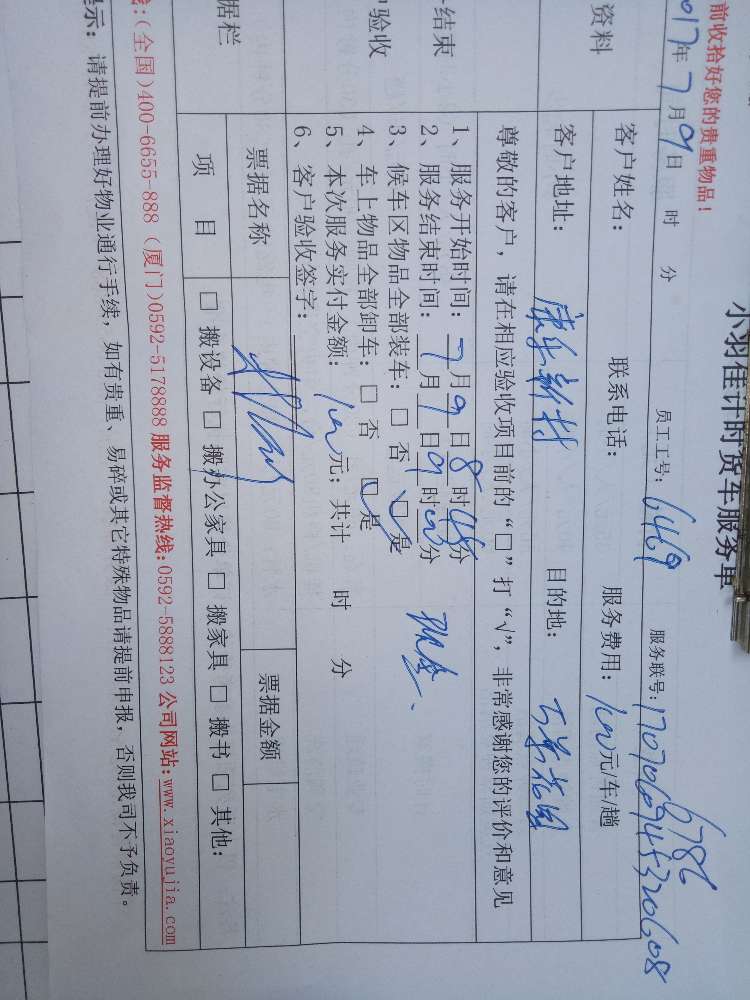 小羽佳计时货车服务单
前收拾好您的贵重物品!
017年7月9日 时 分 员工工号: 6469 服务联号: 1707069453220608
6786
资料
客户姓名: 联系电话: 服务费用: 100元/车/趟
客户地址: 康乐新村 目的地: 万景花园
尊敬的客户，请在相应验收项目前的“□”打“√”，非常感谢您的评价和意见
结束
验收
1、服务开始时间: 7月9日8时45分
2、服务结束时间: 7月9日9时00分 现金、
3、候车区物品全部装车: □ 否 □√ 是
4、车上物品全部卸车: □ 否 □√ 是
5、本次服务实付金额: 100元; 共计 时 分
6、客户验收签字:
据栏
票据名称 票据金额
项 目 □ 搬设备 □ 搬办公家具 □ 搬家具 □ 搬书 □ 其他:
:(全国)400-6655-888 (厦门)0592-5178888 服务监督热线:0592-5888123 公司网站:www.xiaoyujia.com
示: 请提前办理好物业通行手续，如有贵重、易碎或其它特殊物品请提前申报，否则我司不予负责。